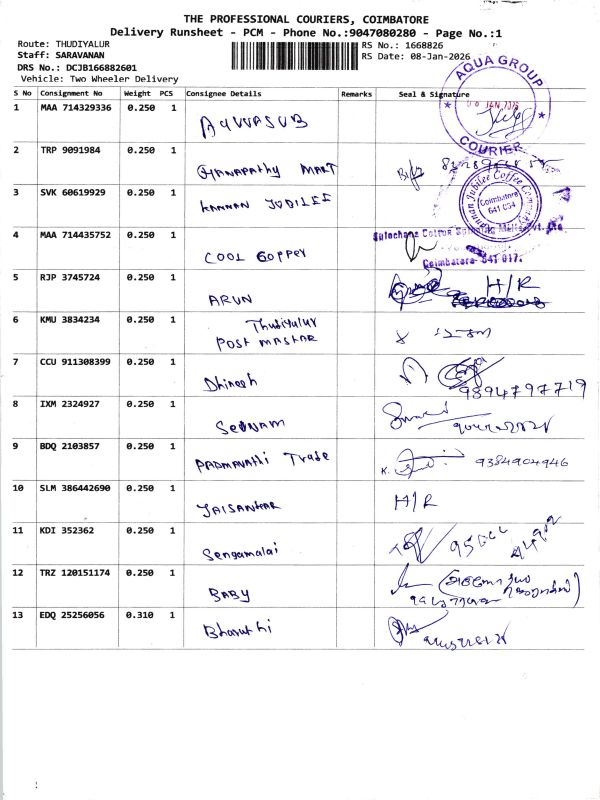 THE PROFESSIONAL COURIERS, COIMBATORE
Delivery Runsheet - PCM - Phone No.:9047080280 - Page No.:1
Route: THUDIYALUR
Staff: SARAVANAN
DRS No.: DCJB166882601
Vehicle: Two Wheeler Delivery
RS No.: 1668826
RS Date: 08-Jan-2026
S No Consignment No Weight PCS Consignee Details Remarks Seal & Signature
1 MAA 714329336 0.250 1
AQUA GROUP
COURIER
2 TRP 9091984 0.250 1 GHANAPATHY MART
3 SVK 60619929 0.250 1 KANNAN JUBILEE
Kannan Jubilee Coffee Company
Coimbatore
641 034
4 MAA 714435752 0.250 1 COOL
Sulochana Cotton Spinning Mills Pvt. Ltd
Coimbatore- 641 017.
5 RJP 3745724 0.250 1 ARUN H/R
6 KMU 3834234 0.250 1 Thudiyalur
POST MASTAR
7 CCU 911308399 0.250 1 Dhinesh
9894797719
8 IXM 2324927 0.250 1
9 BDQ 2103857 0.250 1 PADMAVATHI Trade 9384904946
10 SLM 386442690 0.250 1 JAISANKAR H/R
11 KDI 352362 0.250 1 Sengamalai
12 TRZ 120151174 0.250 1 BABY
13 EDQ 25256056 0.310 1 Bharathi